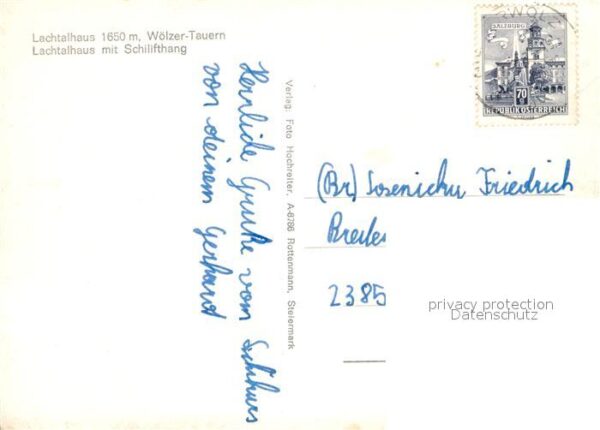 Lachtalhaus 1650 m, Wölzer-Tauern
Lachtalhaus mit Schilifthang
Herzliche Grüße vom Schikurs
von deinem Gerhard
Verlag: Foto Hochreiter, A-8786 Rottenmann, Steiermark
SALZBURG
70
REPUBLIK ÖSTERREICH
(Br) Friedrich
2385
privacy protection
Datenschutz